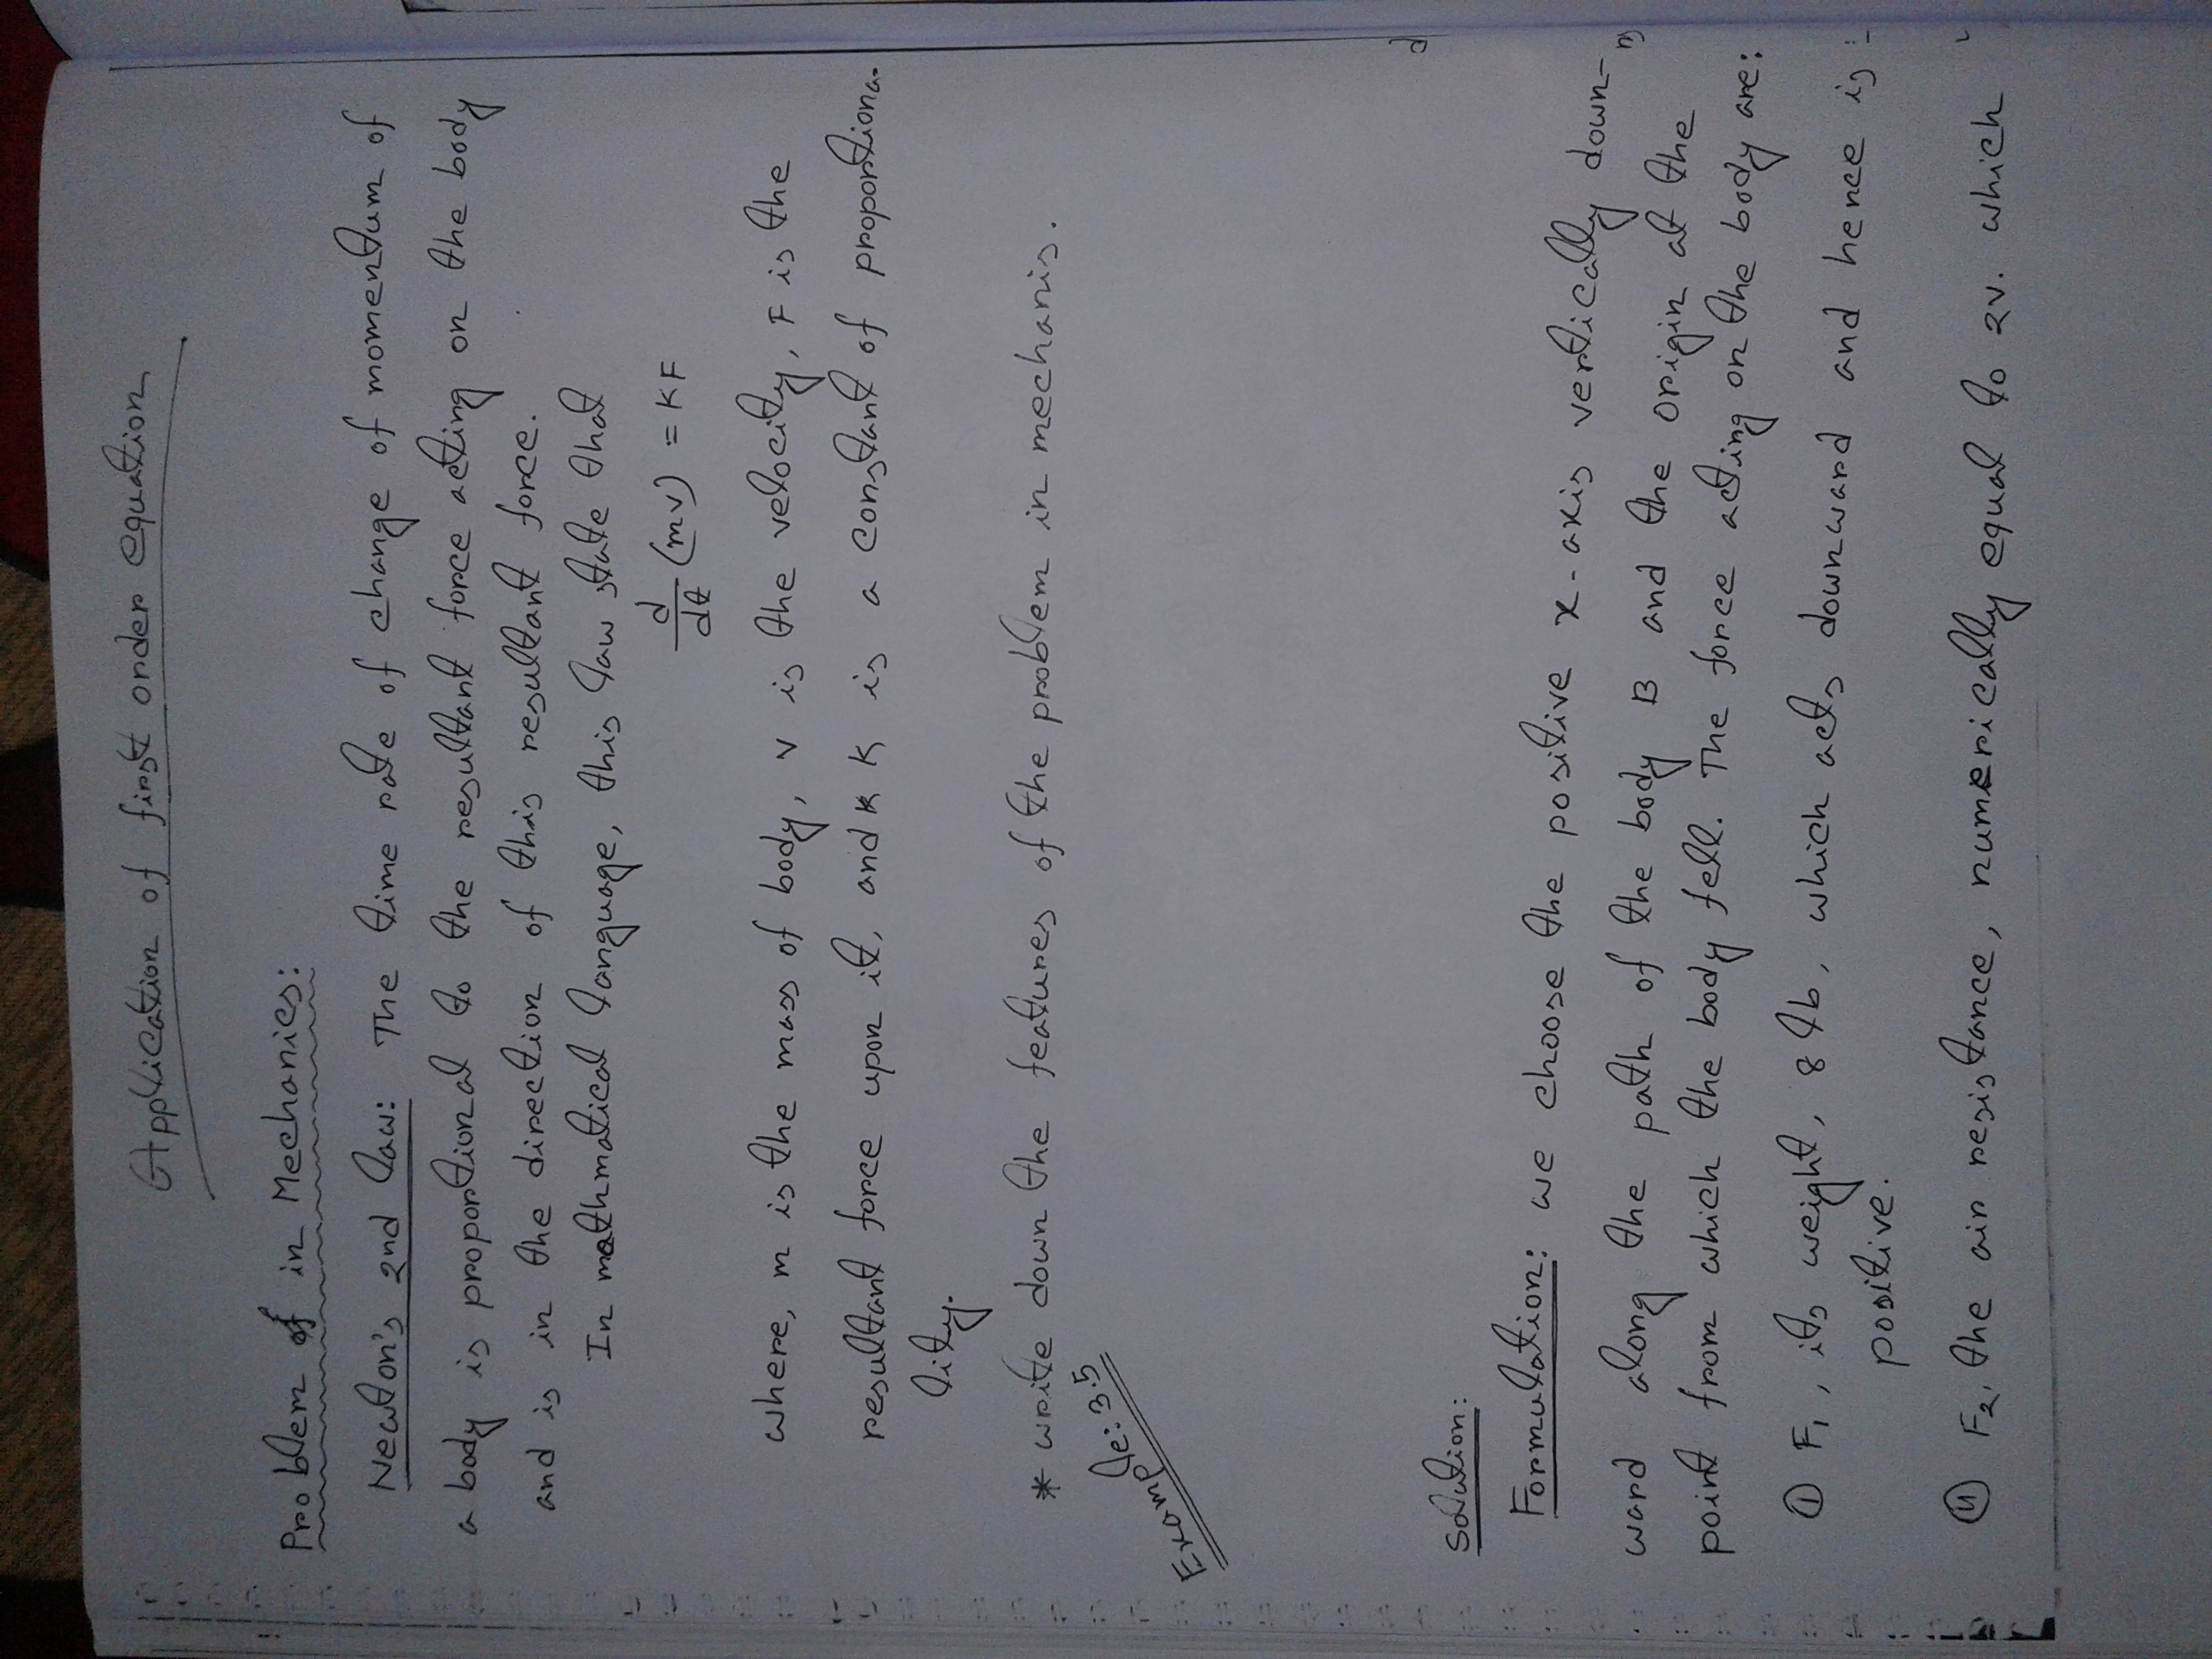 Application of first order equation
Problem of in Mechanics:
Newton's 2nd law: The time rate of change of momentum of
a body is proportional to the resultant force acting on the body
and is in the direction of this resultant force.
In mathmatical language, this law state that
d/dt (mv) = KF
where, m is the mass of body, v is the velocity, F is the
resultant force upon it, and K K is a constant of proportiona-
lity.
* write down the features of the problem in mechanis.
Example: 3.5
Solution:
Formulation: we choose the positive x-axis vertically down-
ward along the path of the body B and the origin at the
point from which the body fell. The force acting on the body are:
① F₁, its weight, 8 lb, which acts downward and hence is
positive.
⑪ F₂, the air resistance, numerically equal to 2v. which